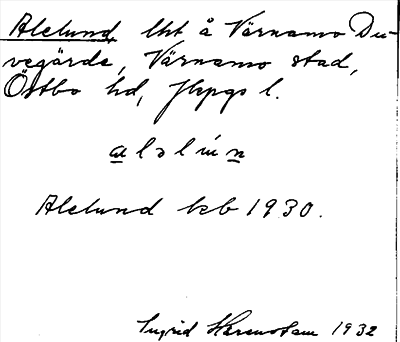 Alelund, lht å Värnamo Du-
vegärde, Värnamo stad,
Östbo hd, Jkpgs l.
alǝlún
Alelund kb 1930.
Ingrid 1932